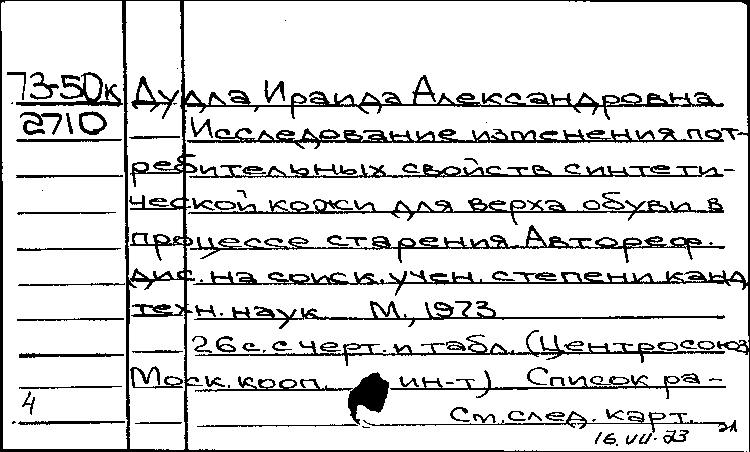 73-50к Дудла, Ираида Александровна
2710 Исследование изменения пот-
ребительных свойств синтети-
ческой кожи для верха обуви в
процессе старения. Автореф.
дис. на соиск. учен. степени канд.
техн. наук М., 1973
26 с. с черт. и табл. (Центросоюз
Моск. кооп. ин-т) Список ра-
4 См. след. карт.
16.VII.73